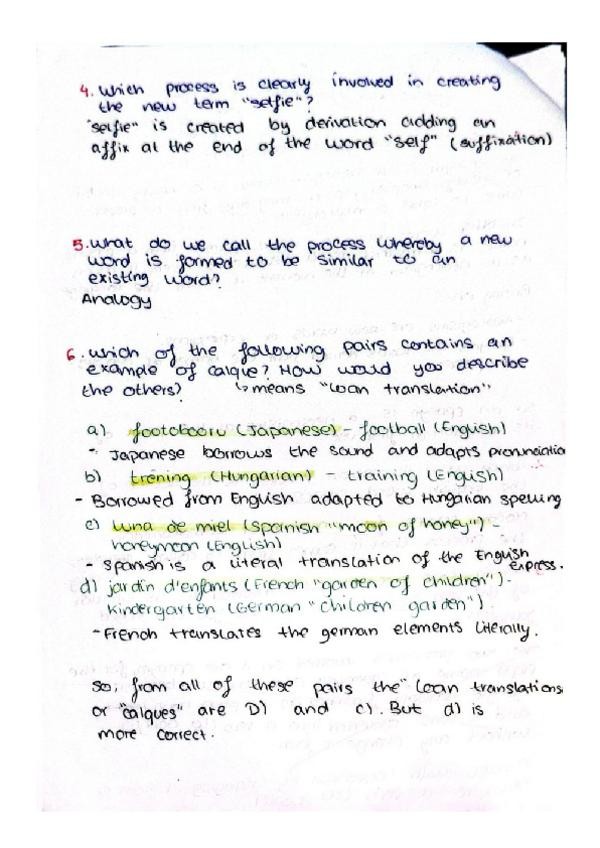 4. Which process is clearly involved in creating
the new term "selfie"?
"selfie" is created by derivation adding an
affix at the end of the word "self" (suffixation)
5. What do we call the process whereby a new
word is formed to be similar to an
existing word?
Analogy
6. which of the following pairs contains an
example of calque? How would you describe
the others? ↳ means "loan translation"
a) footobooru (Japanese) - football (English)
- Japanese borrows the sound and adapts pronunciatio
b) trening (Hungarian) - training (English)
- Borrowed from English adapted to Hungarian spelling
c) luna de miel (Spanish "moon of honey") -
honeymoon (English)
- Spanish is a literal translation of the English
express.
d) jardin d'enfants (French "garden of children") -
Kindergarten (German "children garden")
- French translates the german elements literally.
So, from all of these pairs the "loan translations
or "calques" are D) and c). But d) is
more correct.